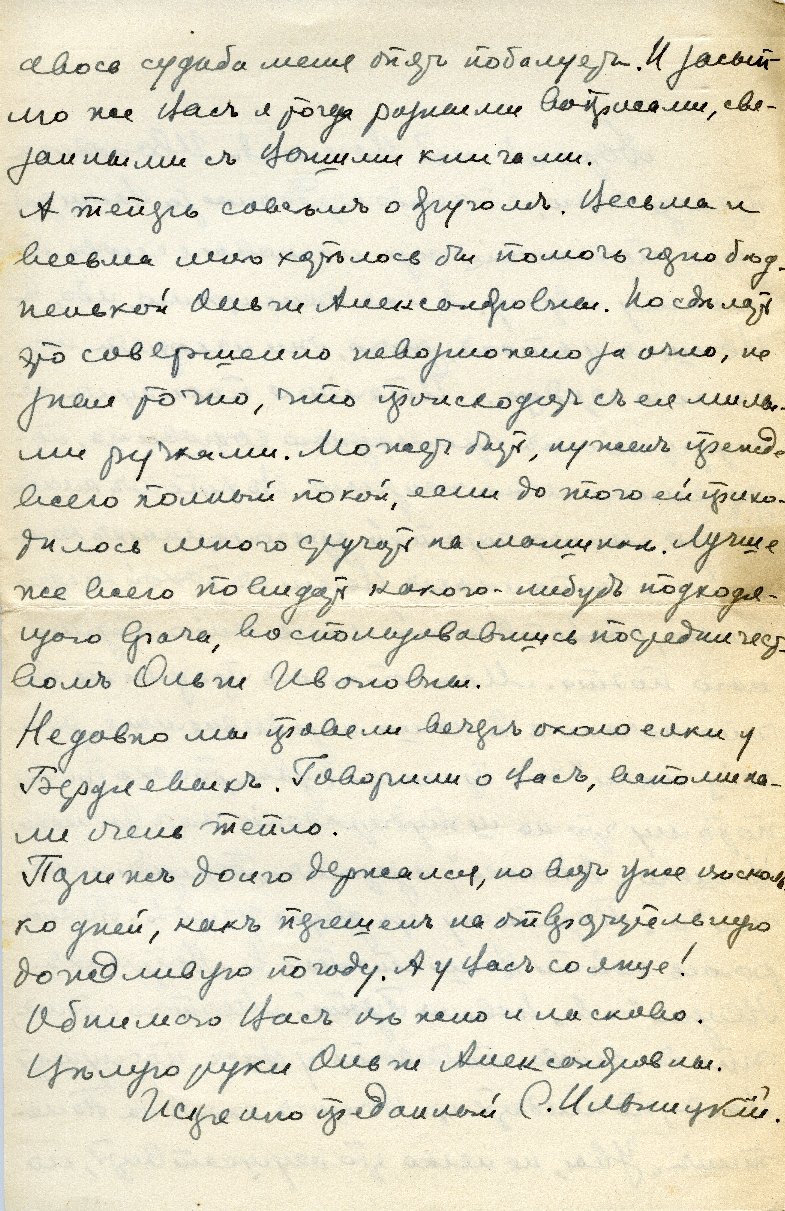 авось судьба меня опять побалуетъ. И засып-
лю же Васъ я тогда разными вопросами, свя-
занными съ Вашими книгами.
А теперь совсѣмъ о другомъ. Весьма и
весьма мнѣ хотѣлось бы помочь бѣд-
ненькой Ольгѣ Александровнѣ. Но сдѣлать
это совершенно невозможно за очно, не
зная точно, что происходитъ съ ея милы-
ми ручками. Можетъ быть, нуженъ прежде
всего полный покой, если до того ей прихо-
дилось много стучать на машинкѣ. Лучше
же всего повидать какого-нибудь подходя-
щаго врача, воспользовавшись посредничест-
вомъ Ольги Ивановны.
Недавно мы провели вечеръ около елки у
Бердяевыхъ. Говорили о Васъ, вспомина-
ли очень тепло.
Парижъ долго держался, но вотъ уже нѣсколь-
ко дней, какъ перешелъ на отвратительную
дождливую погоду. А у Васъ солнце!
Обнимаю Васъ нѣжно и ласково.
Цѣлую руки Ольгѣ Александровнѣ.
Искренно преданный С. Ильницкій.